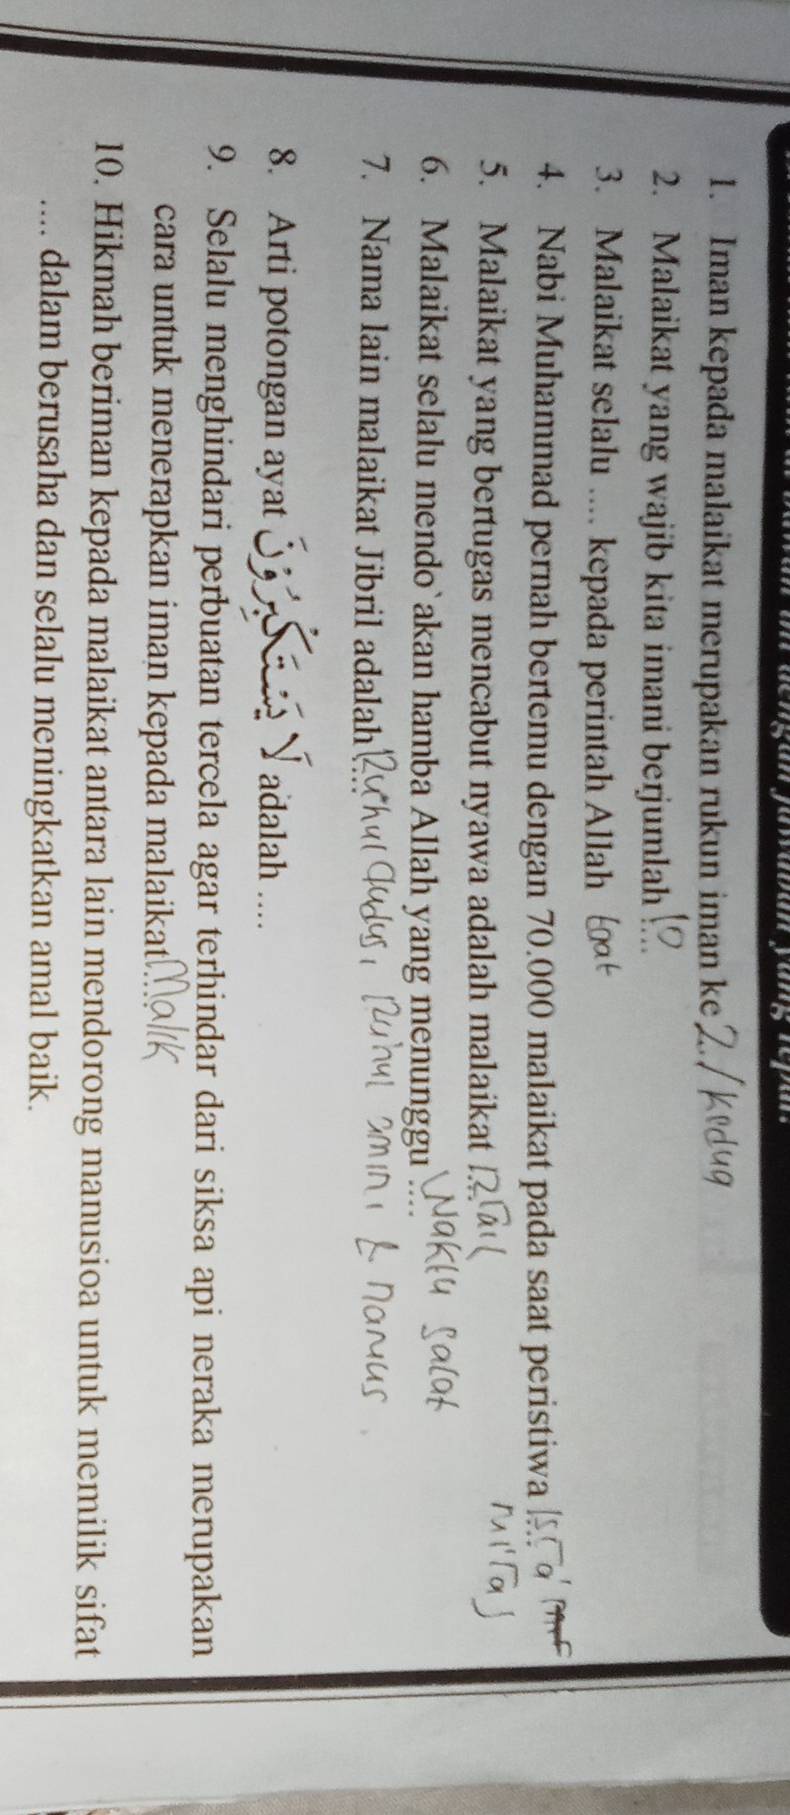 1. Iman kepada malaikat merupakan rukun iman ke 2. / kedua
2. Malaikat yang wajib kita imani berjumlah .... 10
3. Malaikat selalu .... kepada perintah Allah taat
4. Nabi Muhammad pernah bertemu dengan 70.000 malaikat pada saat peristiwa .... isra' mi'raj
5. Malaikat yang bertugas mencabut nyawa adalah malaikat ....
6. Malaikat selalu mendo`akan hamba Allah yang menunggu .... Waktu salat
7. Nama lain malaikat Jibril adalah .... Ruhul Qudus, Ruhul amin, & namus
8. Arti potongan ayat لَا يَسْتَكْبِرُوْنَ adalah ....
9. Selalu menghindari perbuatan tercela agar terhindar dari siksa api neraka merupakan
cara untuk menerapkan iman kepada malaikat .... Malik
10. Hikmah beriman kepada malaikat antara lain mendorong manusioa untuk memilik sifat
.... dalam berusaha dan selalu meningkatkan amal baik.